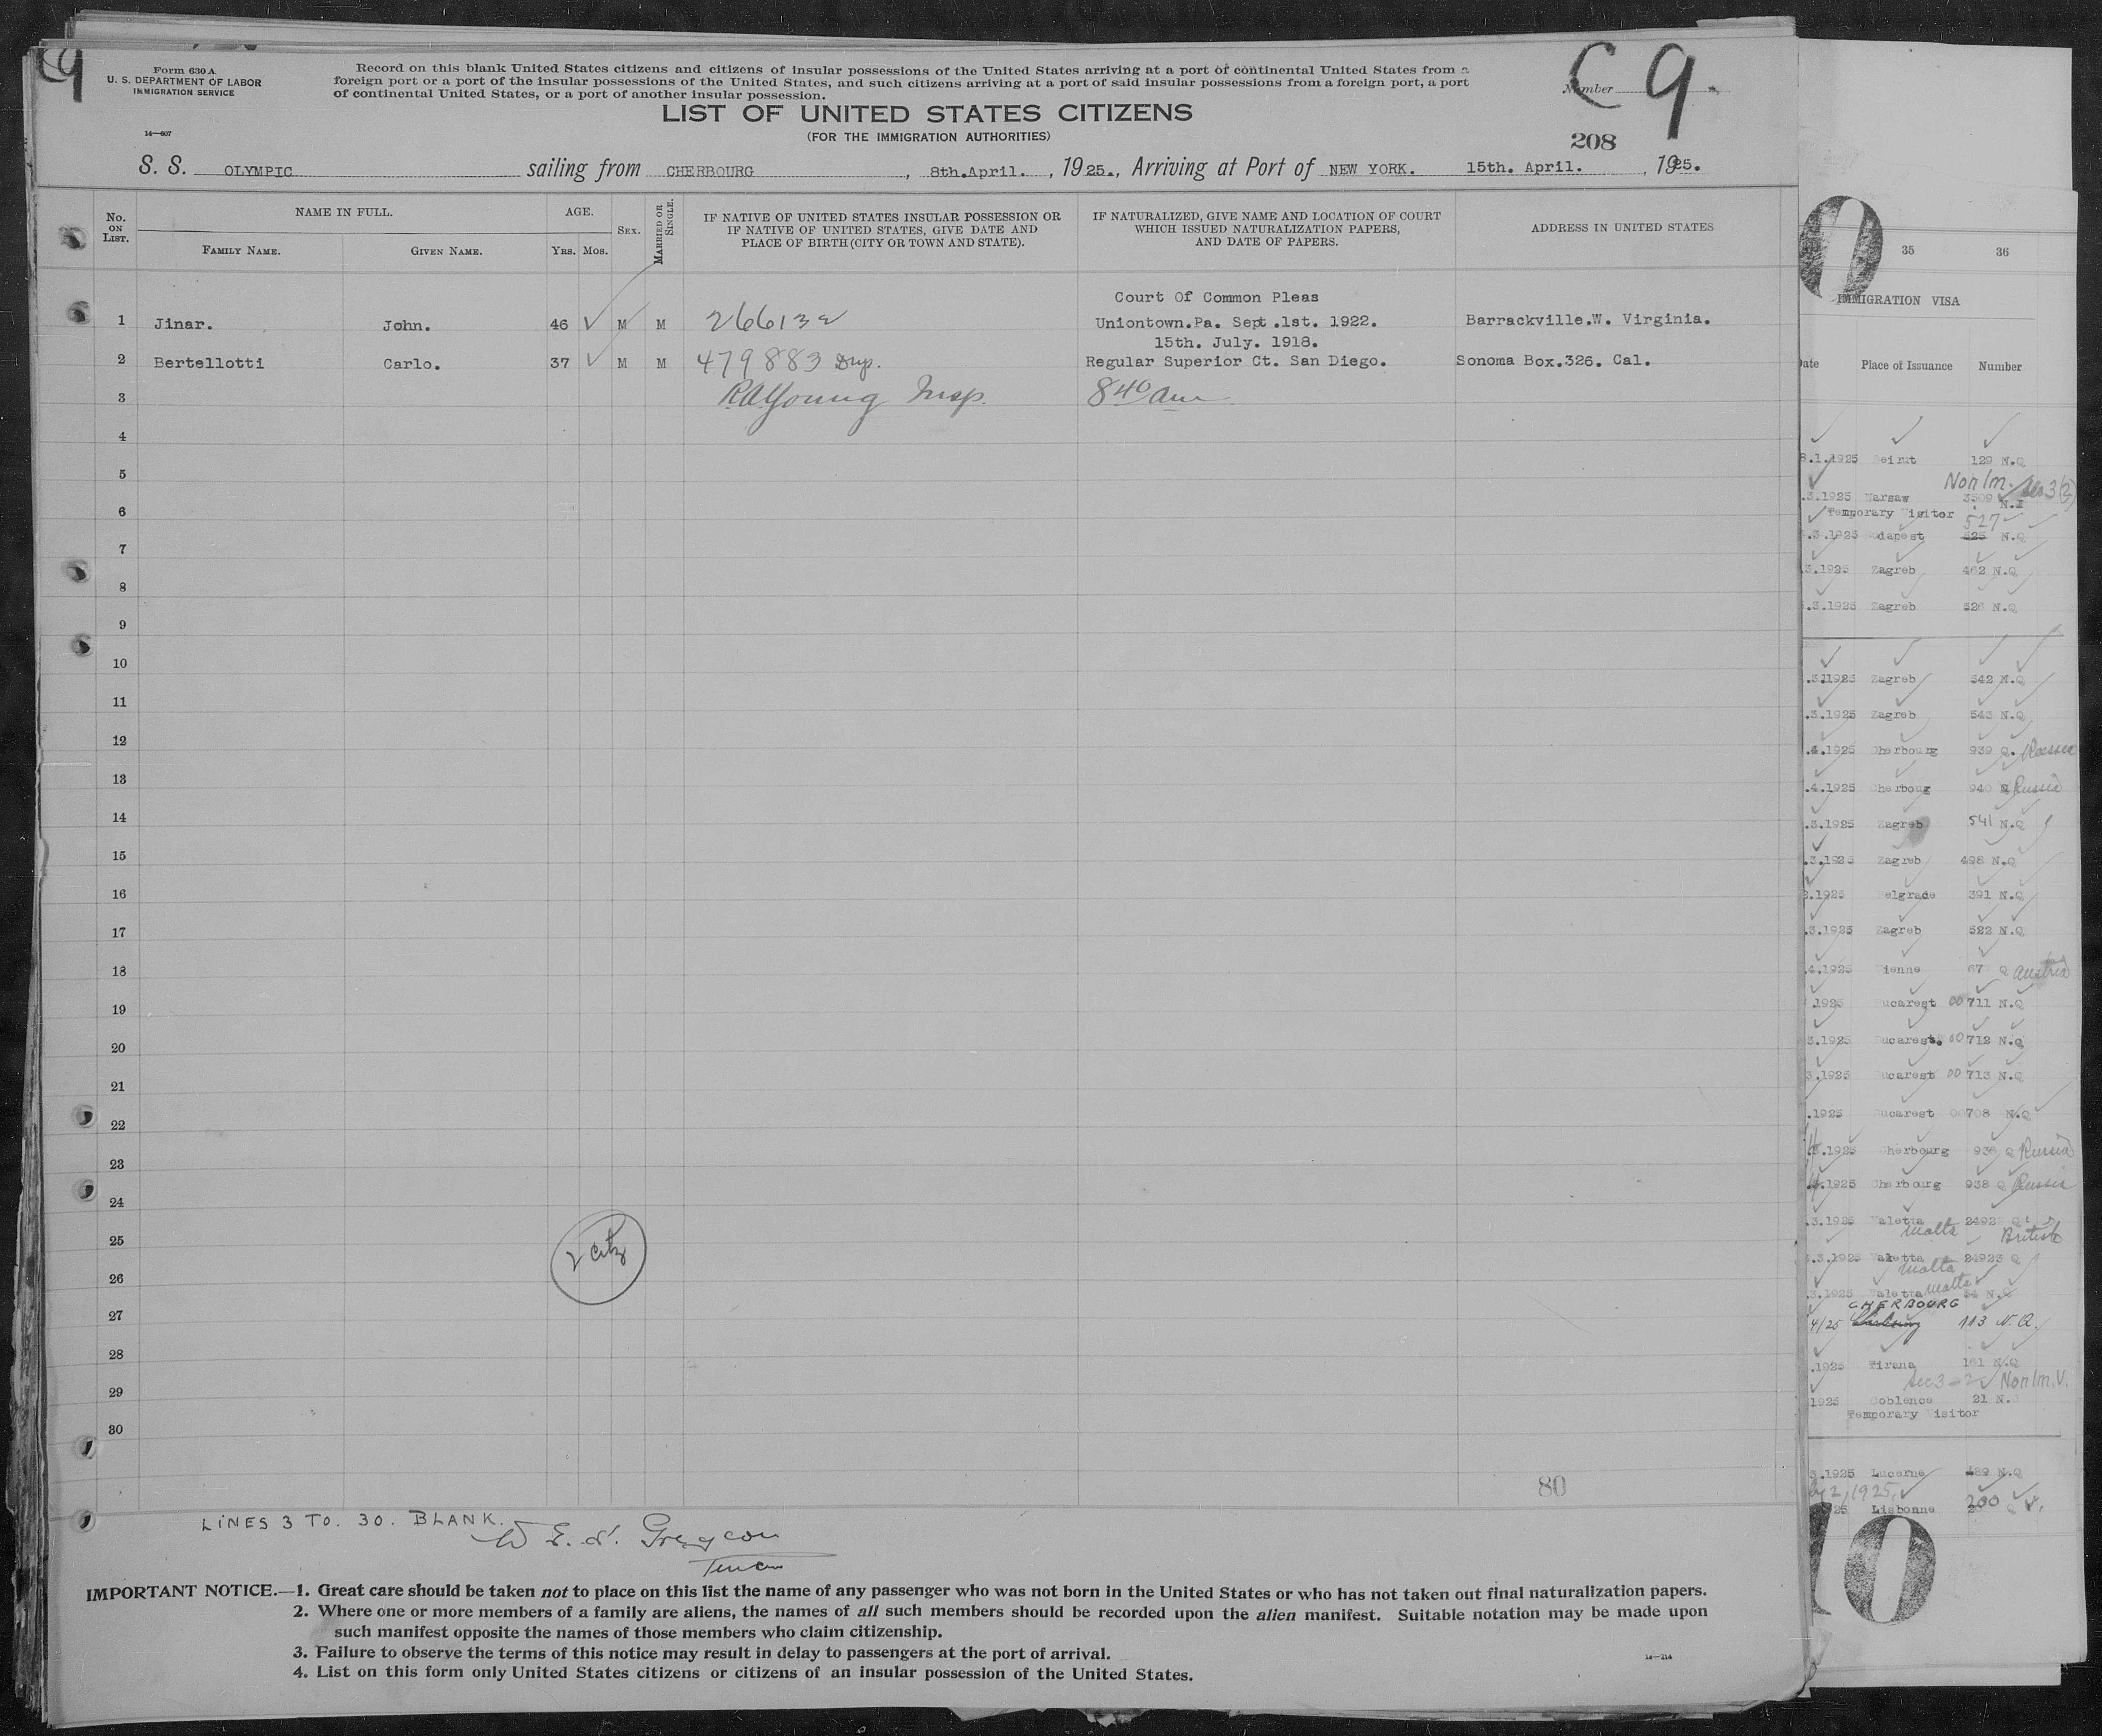 C 9
9
Form 630 A
U. S. DEPARTMENT OF LABOR
IMMIGRATION SERVICE
14—607
Record on this blank United States citizens and citizens of insular possessions of the United States arriving at a port of continental United States from a
foreign port or a port of the insular possessions of the United States, and such citizens arriving at a port of said insular possessions from a foreign port, a port
of continental United States, or a port of another insular possession.
Number
LIST OF UNITED STATES CITIZENS
(FOR THE IMMIGRATION AUTHORITIES)
208
S. S. OLYMPIC sailing from CHERBOURG, 8th.April., 1925., Arriving at Port of NEW YORK. 15th. April., 1925.
No. ON LIST.
NAME IN FULL.
FAMILY NAME. GIVEN NAME.
AGE.
YRS. MOS.
SEX.
MARRIED OR SINGLE.
IF NATIVE OF UNITED STATES INSULAR POSSESSION OR
IF NATIVE OF UNITED STATES, GIVE DATE AND
PLACE OF BIRTH (CITY OR TOWN AND STATE).
IF NATURALIZED, GIVE NAME AND LOCATION OF COURT
WHICH ISSUED NATURALIZATION PAPERS,
AND DATE OF PAPERS.
ADDRESS IN UNITED STATES
Court Of Common Pleas
1 Jinar. John. 46 M M 266132 Uniontown.Pa. Sept.1st. 1922. Barrackville.W. Virginia.
15th. July. 1918.
2 Bertellotti Carlo. 37 M M 479883 Dup. Regular Superior Ct. San Diego. Sonoma Box.326. Cal.
3 RAYoung Insp. 8 40 am
4
5
6
7
8
9
10
11
12
13
14
15
16
17
18
19
20
21
22
23
24
25
26
27
28
29
30
2 Citz
80
LINES 3 TO. 30. BLANK.
IMPORTANT NOTICE.—1. Great care should be taken not to place on this list the name of any passenger who was not born in the United States or who has not taken out final naturalization papers.
2. Where one or more members of a family are aliens, the names of all such members should be recorded upon the alien manifest. Suitable notation may be made upon
such manifest opposite the names of those members who claim citizenship.
3. Failure to observe the terms of this notice may result in delay to passengers at the port of arrival.
4. List on this form only United States citizens or citizens of an insular possession of the United States.
35 36
IMMIGRATION VISA
Place of Issuance Number
.1.1925 129 N.Q
Non Im. Sec 3(2)
.3.1925 Warsaw 3509
Temporary Visitor N.I
527
.3.1925 N.Q
3.1925 Zagreb 462 N.Q
.3.1925 Zagreb 526 N.Q
.3.1925 Zagreb 542 N.Q
.3.1925 Zagreb 543 N.Q
.4.1925 Cherbourg 939 Q. Russia
.4.1925 Cherboug 940 Q Russia
.3.1925 Zagreb 541 N.Q
.3.1925 Zagreb 498 N.Q
.1925 Belgrade 391 N.Q
.3.1925 Zagreb 522 N.Q
.4.1925 Vienne 67 Q Austria
.1925 Bucarest 00711 N.Q
3.1925 Bucarest. 00712 N.Q
3.1925 Bucarest 00713 N.Q
.1925 Bucarest 00708 N.Q
.1925 Cherbourg 936 Q Russia
.1925 Cherbourg 938 Q Russia
.3.1925 Valetta 2492 Q
Malta British
.3.1925 Valetta 24923 Q
Malta
.3.1925 Valetta Malta 54 N.Q
CHERBOURG
4/25 113 N.Q.
.1925 Tirana 161 N.Q
Sec 3-2 Non Im. V.
1925 Coblence 21 N.
Temporary Visitor
.1925 Lucerne 489 N.Q
2/1925
25 Lisbonne 200 Q
10